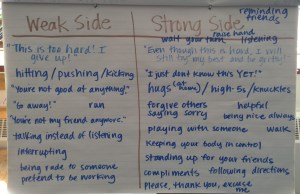 Weak Side
"This is too hard! I
give up!"
hitting/pushing/kicking
"You're not good at anything!"
"Go away!" run
"You're not my friend anymore."
talking instead of listening
interrupting
being rude to someone
pretend to be working
Strong Side
reminding
friends
raise hand
wait your turn listening
"Even though this is hard, I will
still try my best and be gritty!
"I just don't know this YET!"
hugs (at home) / high-5s / knuckles
forgive others helpful
saying sorry being nice always
playing with someone walk
Keeping your body in control
Standing up for your friends
compliments following directions
Please, thank you, excuse
me